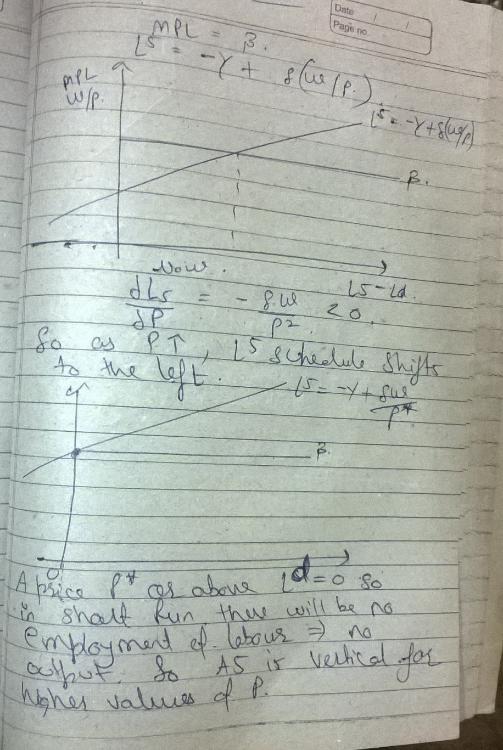 Date / /
Page no
MPL = β.
L^S = -γ + δ(w/p).
MPL
W/p.
L^S = -γ+δ(w/p)
β.
L^S-Ld.
Now.
dLs/dP = - δ.w/P² < 0.
So as P↑, L^S schedule shifts
to the left.
L^S = -γ + δw/P*
β.
O
A price P* or above L^d = 0 so
in short run there will be no
employment of labour ⇒ no
output. So AS is vertical for
higher values of P.